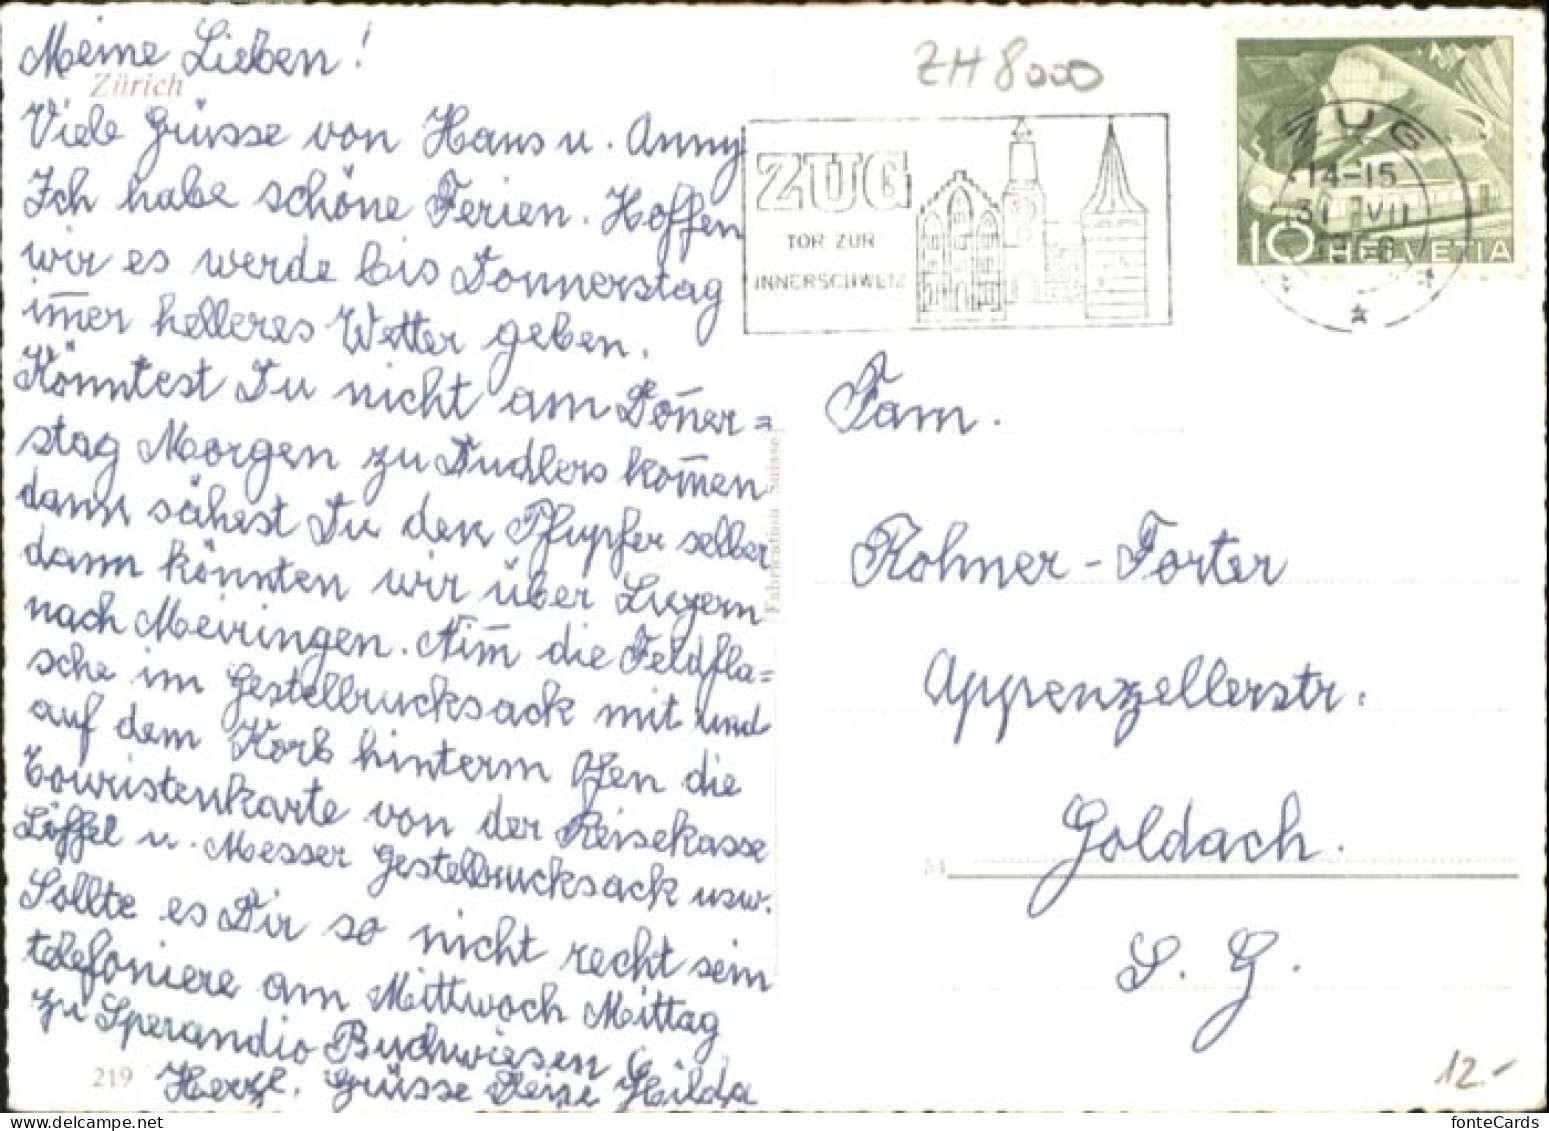 Meine Lieben!
Zürich
Viele Grüsse von Hans u. Anny
Ich habe schöne Ferien. Hoffen
wir es werde bis Donnerstag
im̄er helleres Wetter geben.
Könntest Du nicht am Don̄er=
stag Morgen zu Tudlers kom̄en
dann sähest Du den Pfupfer selber
dann könnten wir über Luzern
nach Meiringen. Nim̄ die Feldfla=
sche im Gestellrucksack mit und
auf dem Korb hinterm Ofen die
Touristenkarte von der Reisekasse
Löffel u. Messer Gestellrucksack usw.
Sollte es Dir so nicht recht sein
telefoniere am Mittwoch Mittag
zu Sperandio Buchwiesen 6
Herzl. Grüsse Deine Hilda
219
Fabrication Suisse
ZH 8000
ZUG
TOR ZUR
INNERSCHWEIZ
ZUG
14-15
31 VII
10 HELVETIA
Fam.
Rohner-Forter
Appenzellerstr.
51
Goldach.
S. G.
12.-
fonteCards